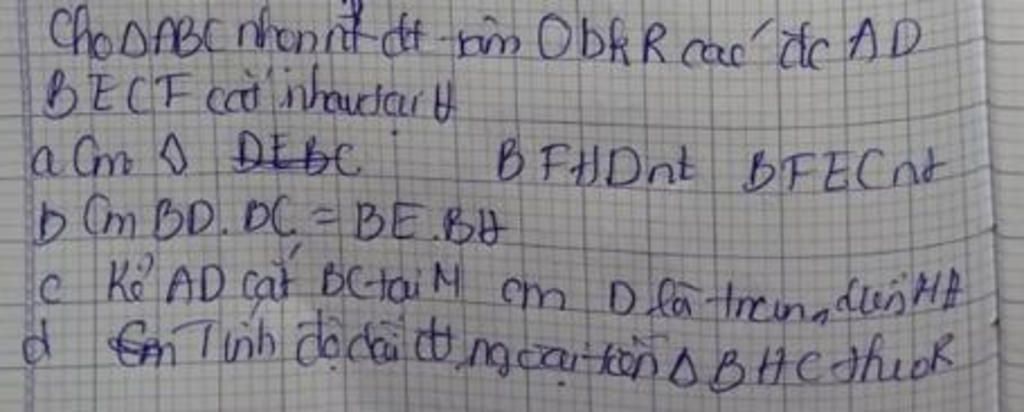 Cho △ABC nhọn nt đt tâm O bk R các đc AD
BE CF cắt nhau tại H
a Cm ◊ BFHD nt BFEC nt
b Cm BD. DC = BE.BH
c Kẻ AD cắt BC tại M cm D là trung điểm
d Tính độ dài đt ngoại tiếp △ BHC theo R